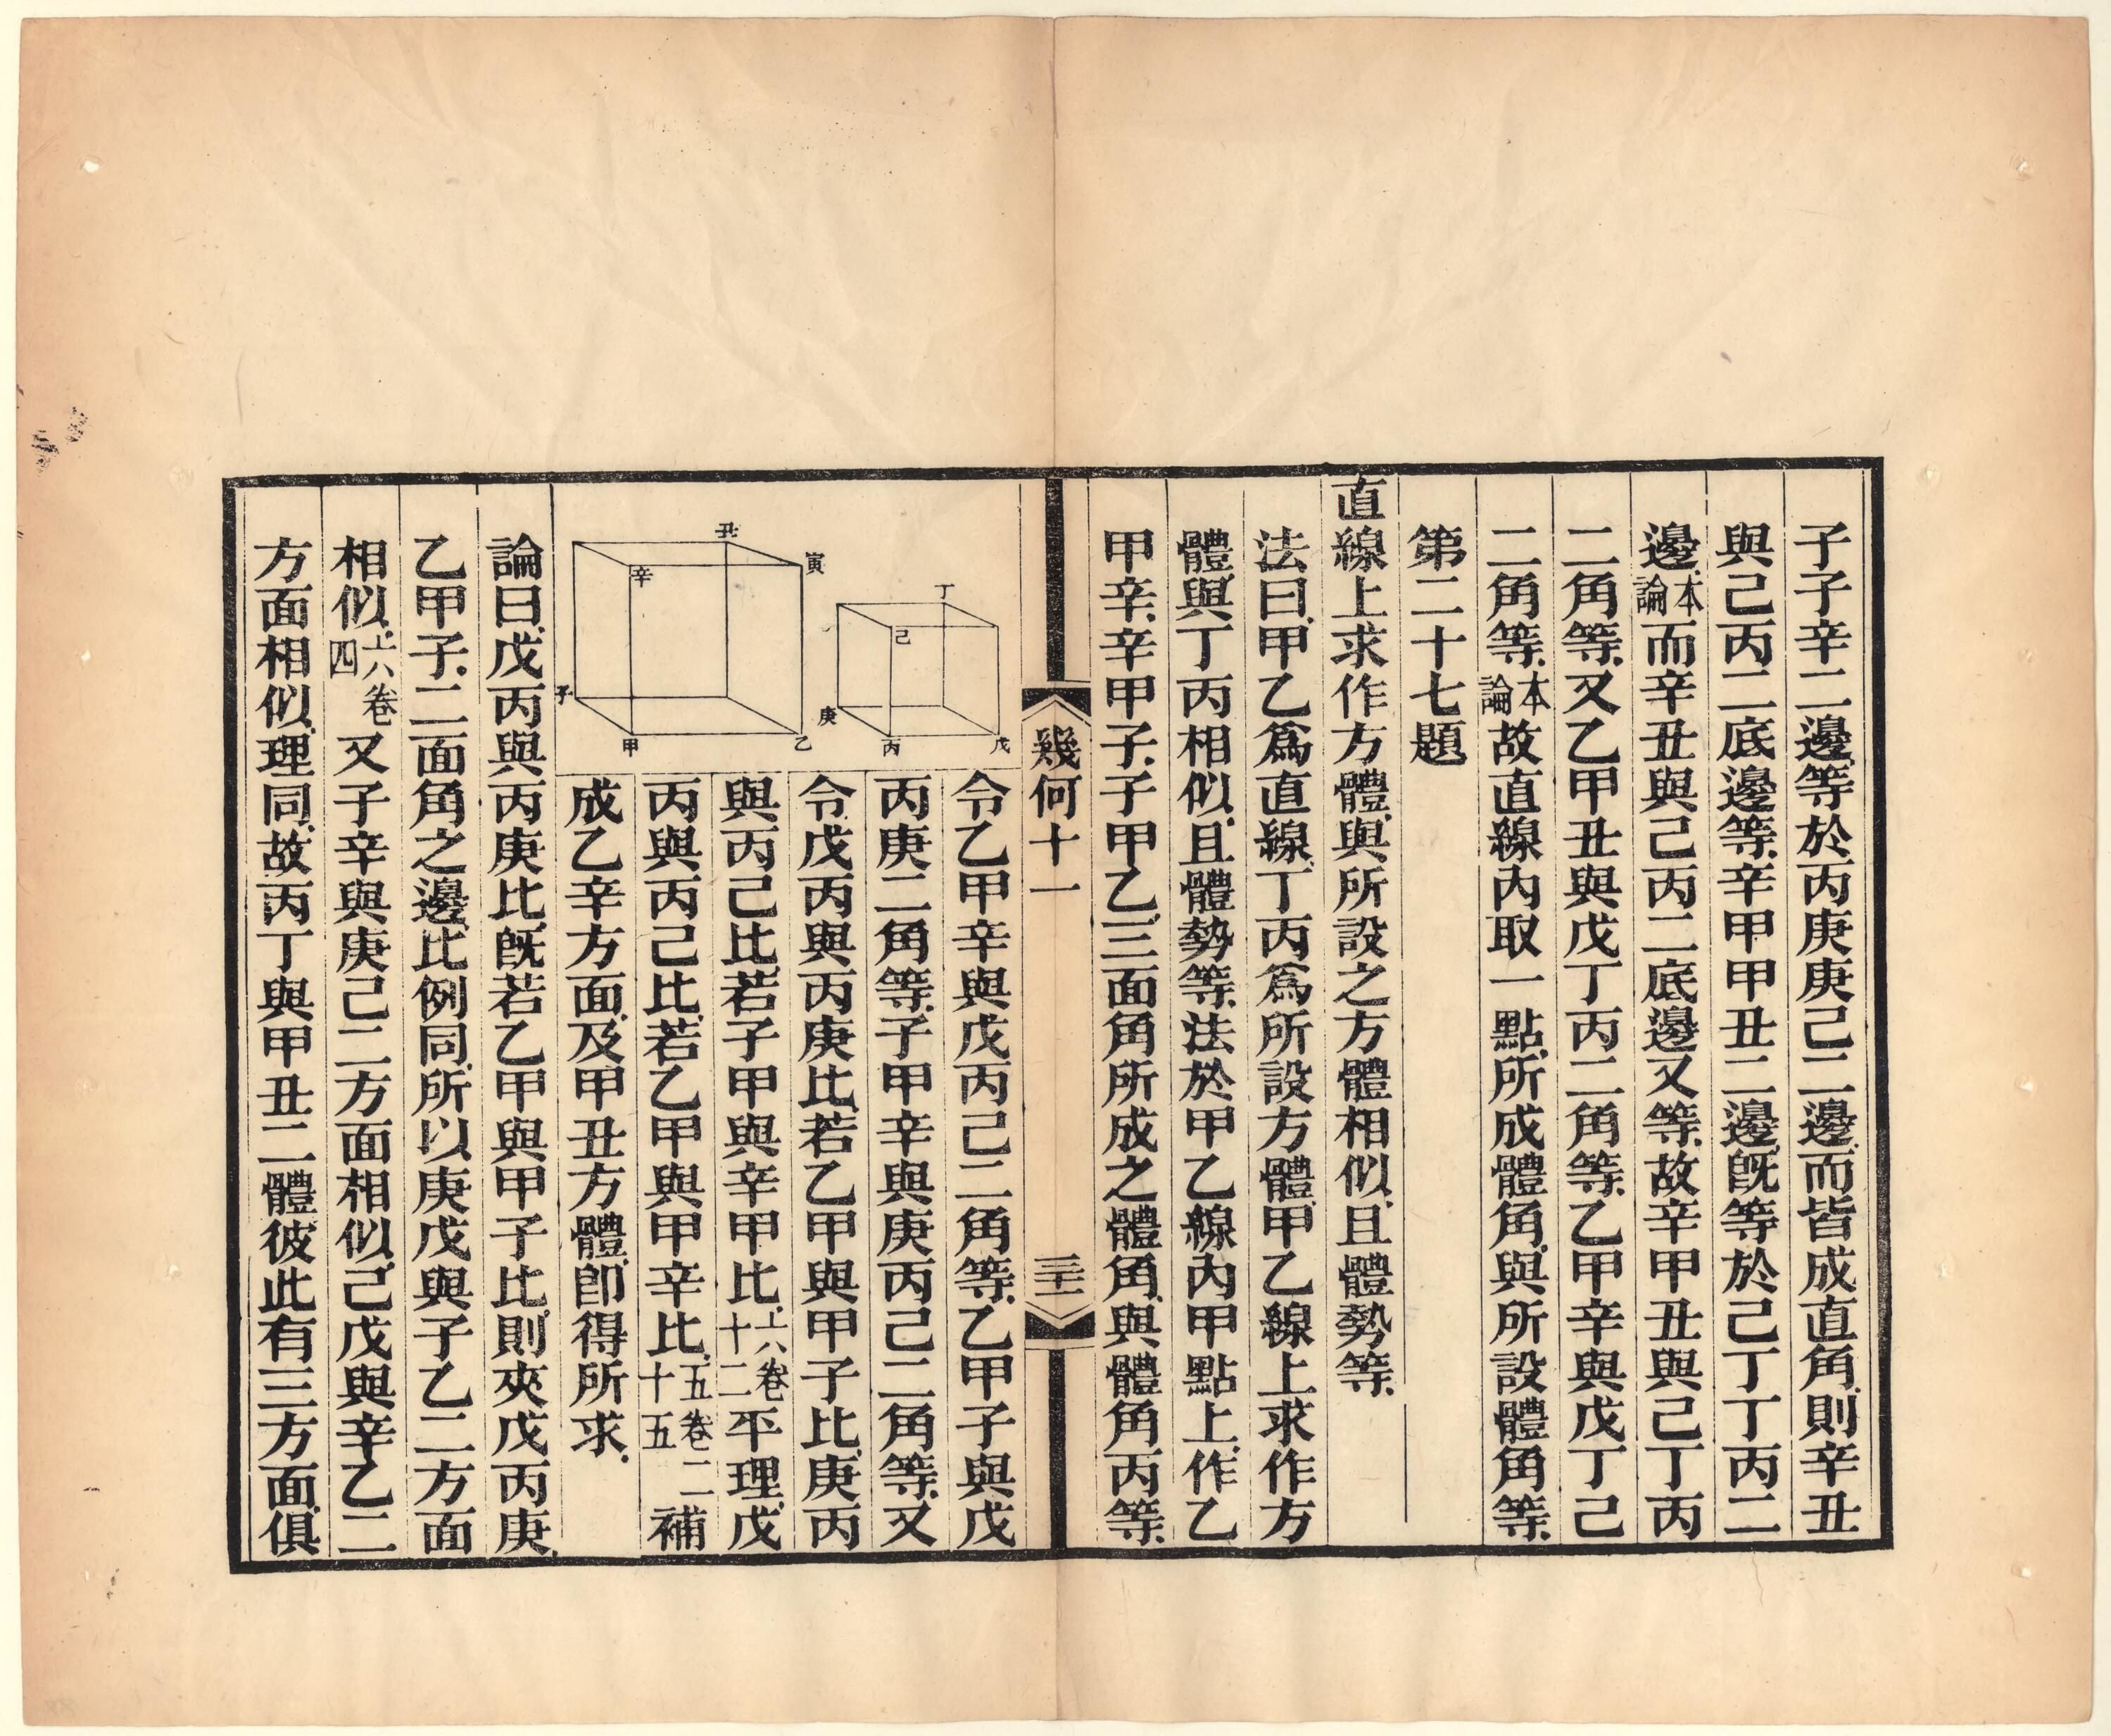 子子辛二邊等於丙庚庚己二邊而皆成直角則辛丑
與己丙二底邊等辛甲甲丑二邊既等於己丁丁丙二
邊本論而辛丑與己丙二底邊又等故辛甲丑與己丁丙
二角等又乙甲丑與戊丁丙二角等乙甲辛與戊丁己
二角等本論故直線內取一點所成體角與所設體角等
第二十七題
直線上求作方體與所設之方體相似且體勢等
法曰甲乙為直線丁丙為所設方體甲乙線上求作方
體與丁丙相似且體勢等法於甲乙線內甲點上作乙
甲辛辛甲子子甲乙三面角所成之體角與體角丙等
幾何十一
三十二
丑
寅
辛
子
甲
乙
丁
己
庚
丙
戊
令乙甲辛與戊丙己二角等乙甲子與戊
丙庚二角等子甲辛與庚丙己二角等又
令戊丙與丙庚比若乙甲與甲子比庚丙
與丙己比若子甲與辛甲比六卷十二平理戊
丙與丙己比若乙甲與甲辛比五卷二十五補
成乙辛方面及甲丑方體即得所求
論曰戊丙與丙庚比既若乙甲與甲子比則夾戊丙庚
乙甲子二面角之邊比例同所以庚戊與子乙二方面
相似六卷上四又子辛與庚己二方面相似己戊與辛乙二
方面相似理同故丙丁與甲丑二體彼此有三方面俱